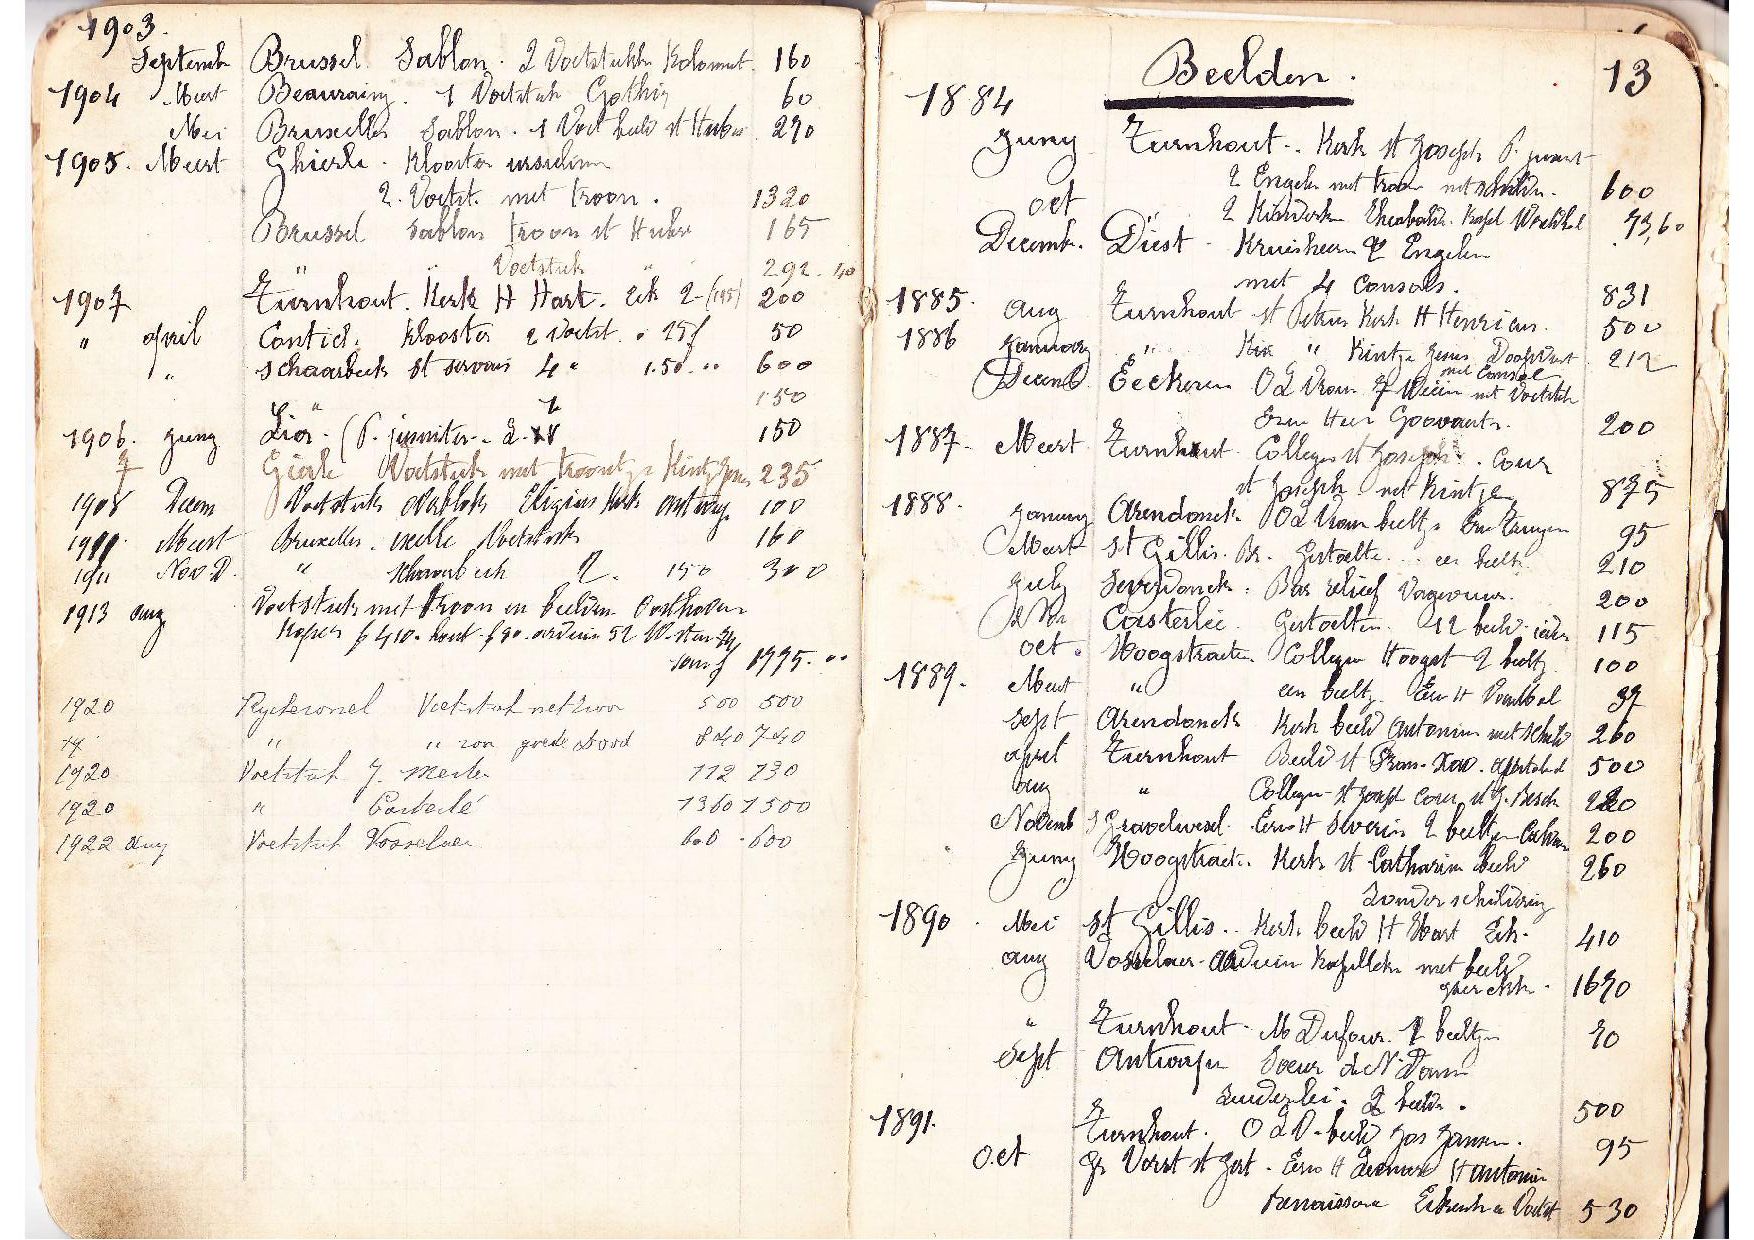 1903.
Septemb Brussel. Sablon. 2 Voetstukk Kolommet. 160
1904 Meert Beauraing. 1 Voetstuk Gothiq 60
Mei Bruxelles Sablon. 1 Voet beeld st Huber 290
1905. Meert Ghierle. Klooster ursulinen
2. Voetst. met troon. 1320
Brussel Sablon troon st Huber 165
" " Voetstuk " 292.40
1907 Turnhout. Kerk H Hart. eik 2 (195) 200
" april Contich. Klooster 2 Voetst. 25f 50
" Schaarbeek st servais 4 " 1.50. " 600
" 150
1906. Juny Lier. (P. jesuiten. 2. 150
7 Gierle Voetstuk met troontje Kintje Jesus 235
1908 Decem Voetstuk Eligius Kerk antwerp 100
1911 Meert Bruxelles. ixelle Voetstuk 160
1911 Nov D. " Schaarbeek 2. 150 300
1913 aug Voetstuk met troon en beelden Oosthoven
Koper f 410. hout f 90. arduin 52
1775. "
1920 Ryckevorsel Voetstuk met troon 500 500
" " van goede Dood 840 740
1920 Voetstuk J. Mertens 112 130
1920 " Casterlé 1360 1500
1922 aug Voetstuk Vosselaer 600 - 600
Beelden.
13
1884
Juny Turnhout.. Kerk st Joseph P. jesuit
2 Engelen met troon met schilder. 600
oct 2 Kinderkn Theobald. Kapel 73,60
Decemb. Diest - Kruisheeren 2 Engelen
met 4 Consols. 831
1885. aug Turnhout st Petrus Kerk H Henricus. 500
1886 January " Kerk " Kintje Jesus Doopvont 212
met Consol
Decemb Eeckeren O L Vrouw 7 Weeën met Voetstuk
Eerw Heer Goovaerts. 200
1887. Meert Turnhout Collegie st Joseph. Cour
st Joseph met Kintje 875
1888. January Arendonck O L Vrouw beeltje 95
Meert st Gillis. Br. Gestoelte. een beelt. 210
July Sevendonck. Bas relief Vagevuur. 200
Casterlée. Gestoelten. 12 beeld. ieder 115
oct. Hoogstraeten. Collegie Hoogst 2 beeltj 100
1889. Meert " een beeltj. Eerw H 37
Sept Arendonck Kerk beeld Antonius met schild 260
april Turnhout Beeld st Fran. Xav. apostolat 500
aug " Collegie st Joseph Cour st J. Besch 220
Novemb s Gravelwesel. Eerw H Severins 2 beeltjen 200
Juny Hoogstraete. Kerk st Catharina beeld 260
zonder schildering
1890. Mei st Gillis.. Kerk beeld H Hart Eik. 410
aug Vosselaer. arduin Kapelleke met beeld
1670
" Turnhout. M Dufour. 2 beeltjen 70
Sept Antwerpen Soeur de N. Dame
zuiderlei. 2 beelde. 500
1891. Turnhout. O L V. beeld Jos Jansen. 95
oct Gr Vorst st Gert. Eerw H H antonius
Renaissance Eikenh en Voetst 530